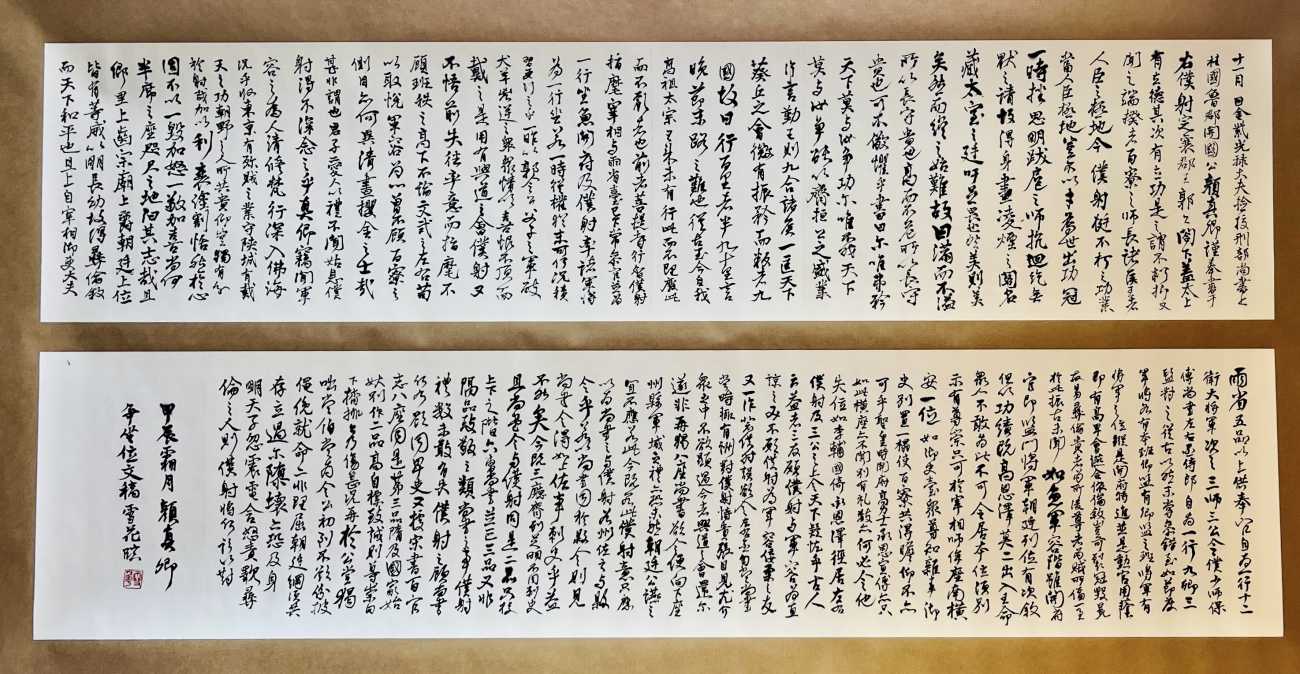 十一月日金紫光禄大夫檢校刑部尚書上
柱國魯郡開國公顏真卿謹奉書于
右僕射定襄郡王郭公閣下蓋太上
有立德其次有立功是之謂不朽抑又
聞之端揆者百寮之師長諸侯王者
人臣之極地今僕射挺不朽之功業
當人臣極地豈不以才為世出功冠
一時挫思明跋扈之師抗迴紇無
猒之請故得身畫凌煙之閣名
藏太室之廷吁足畏也然美則美
矣然而終之始難故曰滿而不溢
所以長守富也高而不危所以長守
貴也可不儆懼乎書曰爾唯弗矜
天下莫與汝爭功爾唯不伐天下
莫與汝爭能以齊桓公之盛業
片言勤王則九合諸侯一匡天下
葵丘之會微有振矜而叛者九
國故曰行百里者半九十里言
晚節末路之難也從古至今曁我
高祖太宗已來未有行此而不理廢此
而不亂者也前者菩提寺行香僕射
指麾宰相與兩省臺省已下常參官並為
一行坐魚開府及僕射率諸軍將
為一行坐若一時從權猶未可何況積
習更行之乎一昨以郭令公父子之軍破
犬羊兇逆之衆衆情欣喜恨不頂而
戴之是用有興道之會僕射又
不悟前失徑率意而指麾不
顧班秩之高下不論文武之左右苟
以取悅軍容為心曾不顧百寮之
側目亦何異清晝攫金之士哉
甚非謂也君子愛人以禮不聞姑息僕
射得不深念之乎真卿竊聞軍
容之為人清修梵行深入佛海
況乎收東京有殄賊之業守陝城有戴
天之功朝野之人所共貴仰豈獨有分
於僕射哉加以利衰塗割恬然於心
固不以一毀加怒一敬加喜尚何
半席之座咫尺之地汩其志哉且
鄉里上齒宗廟上爵朝廷上位
皆有等威以明長幼故得彝倫敘
而天下和平也且上自宰相御史大夫
兩省五品以上供奉官自為一行十二
衛大將軍次之三師三公令僕少師保
傅尚書左右丞侍郎自為一行九卿三
監對之從古以然未嘗參錯至如節度
軍將各有本班卿監有卿監之班將軍有
將軍之位縱是開府特進並是勳官用蔭
即有高卑會讌合依倫敘豈可裂冠毀冕
反易彝倫貴者為卑所凌尊者為賊所偪一至
於此振古未聞如魚軍容階雖開府
官即監門將軍朝廷列位自有次敘
但以功績既高恩澤莫二出入王命
衆人不敢為比不可令居本位須別
示有尊崇只可於宰相師保座南橫
安一位如御史臺衆尊知雜事御
史別置一榻使百寮共得瞻仰不亦
可乎聖皇時開府高力士承恩宣傳亦只
如此橫座亦不聞別有禮數亦何必令他
失位如李輔國倚承恩澤徑居左右
僕射及三公之上令天下疑怪乎古人
云益者三友願僕射與軍容為直
諒之友不願僕射為軍容佞柔之友
又一昨裴僕射誤欲令左右丞勾當尚書
當時輒有酬對僕射恃貴張目見尤介
衆之中不欲顯過今者興道之會還尒
遂非再猲八座尚書欲令便向下座
州縣軍城之禮亦恐未然朝廷公讌之
宜不應若此今既若此僕射意只應
以為尚書之與僕射若州佐之與縣
令乎若以尚書同於縣令則僕射見
尚書令得如上佐事刺史乎益
不然矣今既三廳齊列足明不同刺史
且尚書令與僕射同是二品只校
上下之階六曹尚書並正三品又非
隔品致敬之類尚書之事僕射
禮數未敢有失僕射之顧尚書
何乃欲同卑吏又據宋書百官
志八座同是第三品隋及國家始
升別作二品高自標致誠則尊崇向
下擠排無乃傷甚況再於公堂猲
咄常伯當為令公初到不欲紛披
僶俛就命亦非理屈朝廷紀綱須共
存立過尒隳壞亦恐及身
明天子忽震電含怒責歝彝
倫之人則僕射將何辭以對
甲辰霜月顏真卿
爭坐位文稿雪花